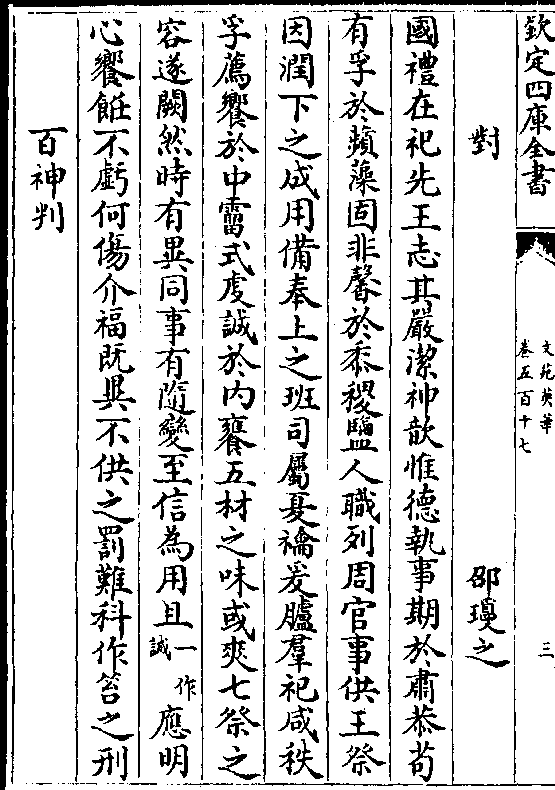 欽定四庫全書
文苑英華
卷五百十七
三
對
邵瓊之
國禮在祀先王志其嚴潔神歆惟德執事期於肅恭苟
有孚於蘋藻固非馨於黍稷鹽人職列周官事供王祭
因潤下之成用備奉上之班司屬夏禴爰臚羣祀咸秩
孚薦饗於中霤式虔誠於内饔五材之味或爽七祭之
容遂闕然時有異同事有隨變至信為用且一作誠應明
心饗飪不虧何傷介福既異不供之罰難科作笞之刑
百神判